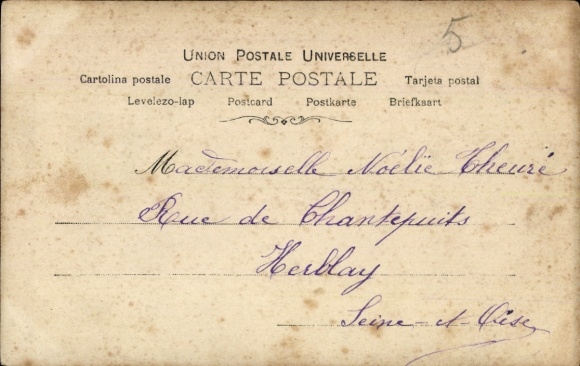 5
UNION POSTALE UNIVERSELLE
Cartolina postale CARTE POSTALE Tarjeta postal
Levelezo-lap Postcard Postkarte Briefkaart
Mademoiselle Noélie Theuré
Rue de Chantepuits
Herblay
Seine-et-Oise